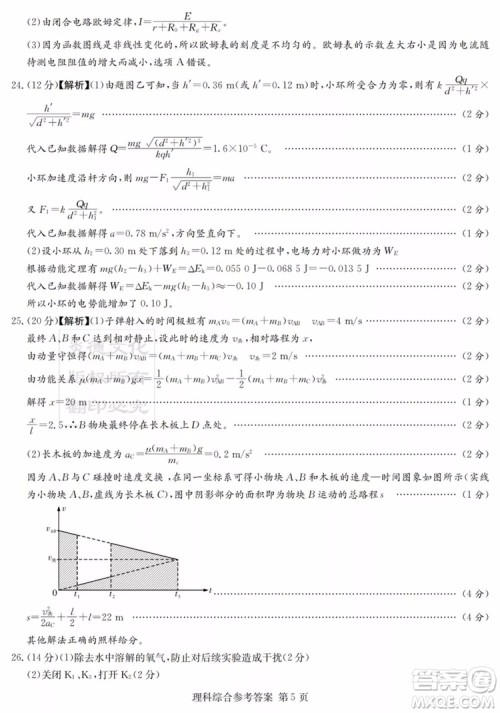 (2)由闭合电路欧姆定律，I=E/(r+R₀+R₆+Rₓ)
(3)因为函数图线是非线性变化的，所以欧姆表的刻度是不均匀的。欧姆表的示数左大右小，电流随
待测电阻阻值的增大而减小，选项 A 错误。
24.(12 分)【解析】(1)由题图乙可知，当 h′=0.36 m(或 h′=0.12 m)时，小环所受合力为零，则 k Qq/(d²+h′²)
× h′/√(d²+h′²)=mg (2 分)
代入已知数据解得 Q=mg √(d²+h′²)(d²+h′²)/(kqh′)=1.6×10⁻⁵ C。 (2 分)
小环加速度沿杆方向，则 mg−F₁ h₁/√(d²+h₁²)=ma (2 分)
又 F₁=k Qq/(d²+h₁²)。
代入已知数据解得 a=0.78 m/s²，方向竖直向下。 (2 分)
(2)设小环从 h₂=0.30 m 处下落到 h₃=0.12 m 处的过程中，电场力对小环做功为 W_E
根据动能定理有 mg(h₂−h₃)+W_E=ΔE_k=0.055 0 J−0.068 5 J=−0.013 5 J (2 分)
代入已知数据解得 W_E=ΔE_k−mg(h₂−h₃)≈−0.10 J
所以小环的电势能增加了 0.10 J。 (2 分)
25.(20 分)【解析】(1)子弹射入的时间极短有 m_A v₀=(m_A+m_B)v_AB v_AB=4 m/s (2 分)
最终 A、B 和 C 必达到相对静止，设速度为 v共，相对路程为 x，
由动量守恒得(m_A+m_B)v_AB=(m_A+m_B+m_C)v共 v共=2 m/s (2 分)
由功能关系 μ(m_A+m_B)gx=1/2(m_A+m_B)v²_AB−1/2(m_A+m_B+m_C)v²共 (2 分)
解得 x=20 m (2 分)
x/l=2.5，∴B 物块最终停在长木板正中间 (2 分)
(2)长木板的加速度为 a_C=μ(m_A+m_B)g/m_c=0.2 m/s² (2 分)
因为小物块 A、B 与 C 碰撞时交换速度，所以小物块与长木板的速度—时间图象如图所示(实线为
小物块 A、B，虚线为长木板 C)，图中阴影部分即为物块的总路程 s
v
v_AB
v共
O t₁ t₂ t₃ t
(4 分)
s=v²共/2a_C+l/2+l=22 m (4 分)
其他解法正确同样给分。
26.(14 分)(1)除去水中溶解的氧气，防止对后续实验造成干扰(2 分)
(2)关闭 K₁、K₂，打开 K₃(2 分)
理科综合参考答案 第 5 页
炎德文化
版权所有
翻印必究